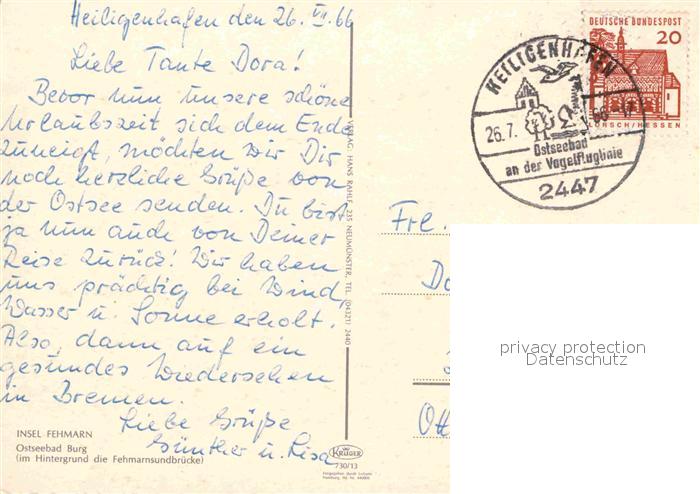 Heiligenhafen den 26. VII. 66
Liebe Tante Dora!
Bevor nun unsere schöne
Urlaubszeit sich dem Ende
zuneigt, möchten wir Dir
noch herzliche Grüße von
der Ostsee senden. Du bist
ja nun auch von Deiner
Reise zurück! Wir haben
uns prächtig bei Wind,
Wasser u. Sonne erholt.
Also, dann auf ein
gesundes Wiedersehen
in Bremen.
Liebe Grüße
Günther u. Lisa
INSEL FEHMARN
Ostseebad Burg
(im Hintergrund die Fehmarnsundbrücke)
KRÜGER
730/13
DEUTSCHE BUNDESPOST
20
LORSCH/HESSEN
HEILIGENHAFEN
26.7.
Ostseebad
an der Vogelfluglinie
2447
Frl.
Do
Ott
privacy protection
Datenschutz